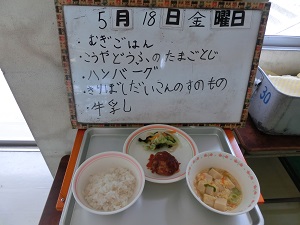 5月18日金曜日
・むぎごはん
・こうやどうふのたまごとじ
・ハンバーグ
・きりぼしだいこんのすのもの
・牛乳し
30